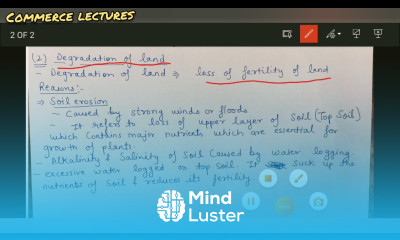 COMMERCE LECTURES
2 OF 2
(2) Degradation of land
- Degradation of land ⇒ loss of fertility of land
Reasons:-
⇒ Soil erosion
- Caused by strong winds or floods
- It refers to loss of upper layer of Soil (Top Soil)
which contains major nutrients which are essential for
growth of plants.
- Alkalinity & Salinity of Soil Caused by water logging
- excessive water logged on top soil. It suck up the
nutrients of Soil & reduces its fertility
Mind
Luster